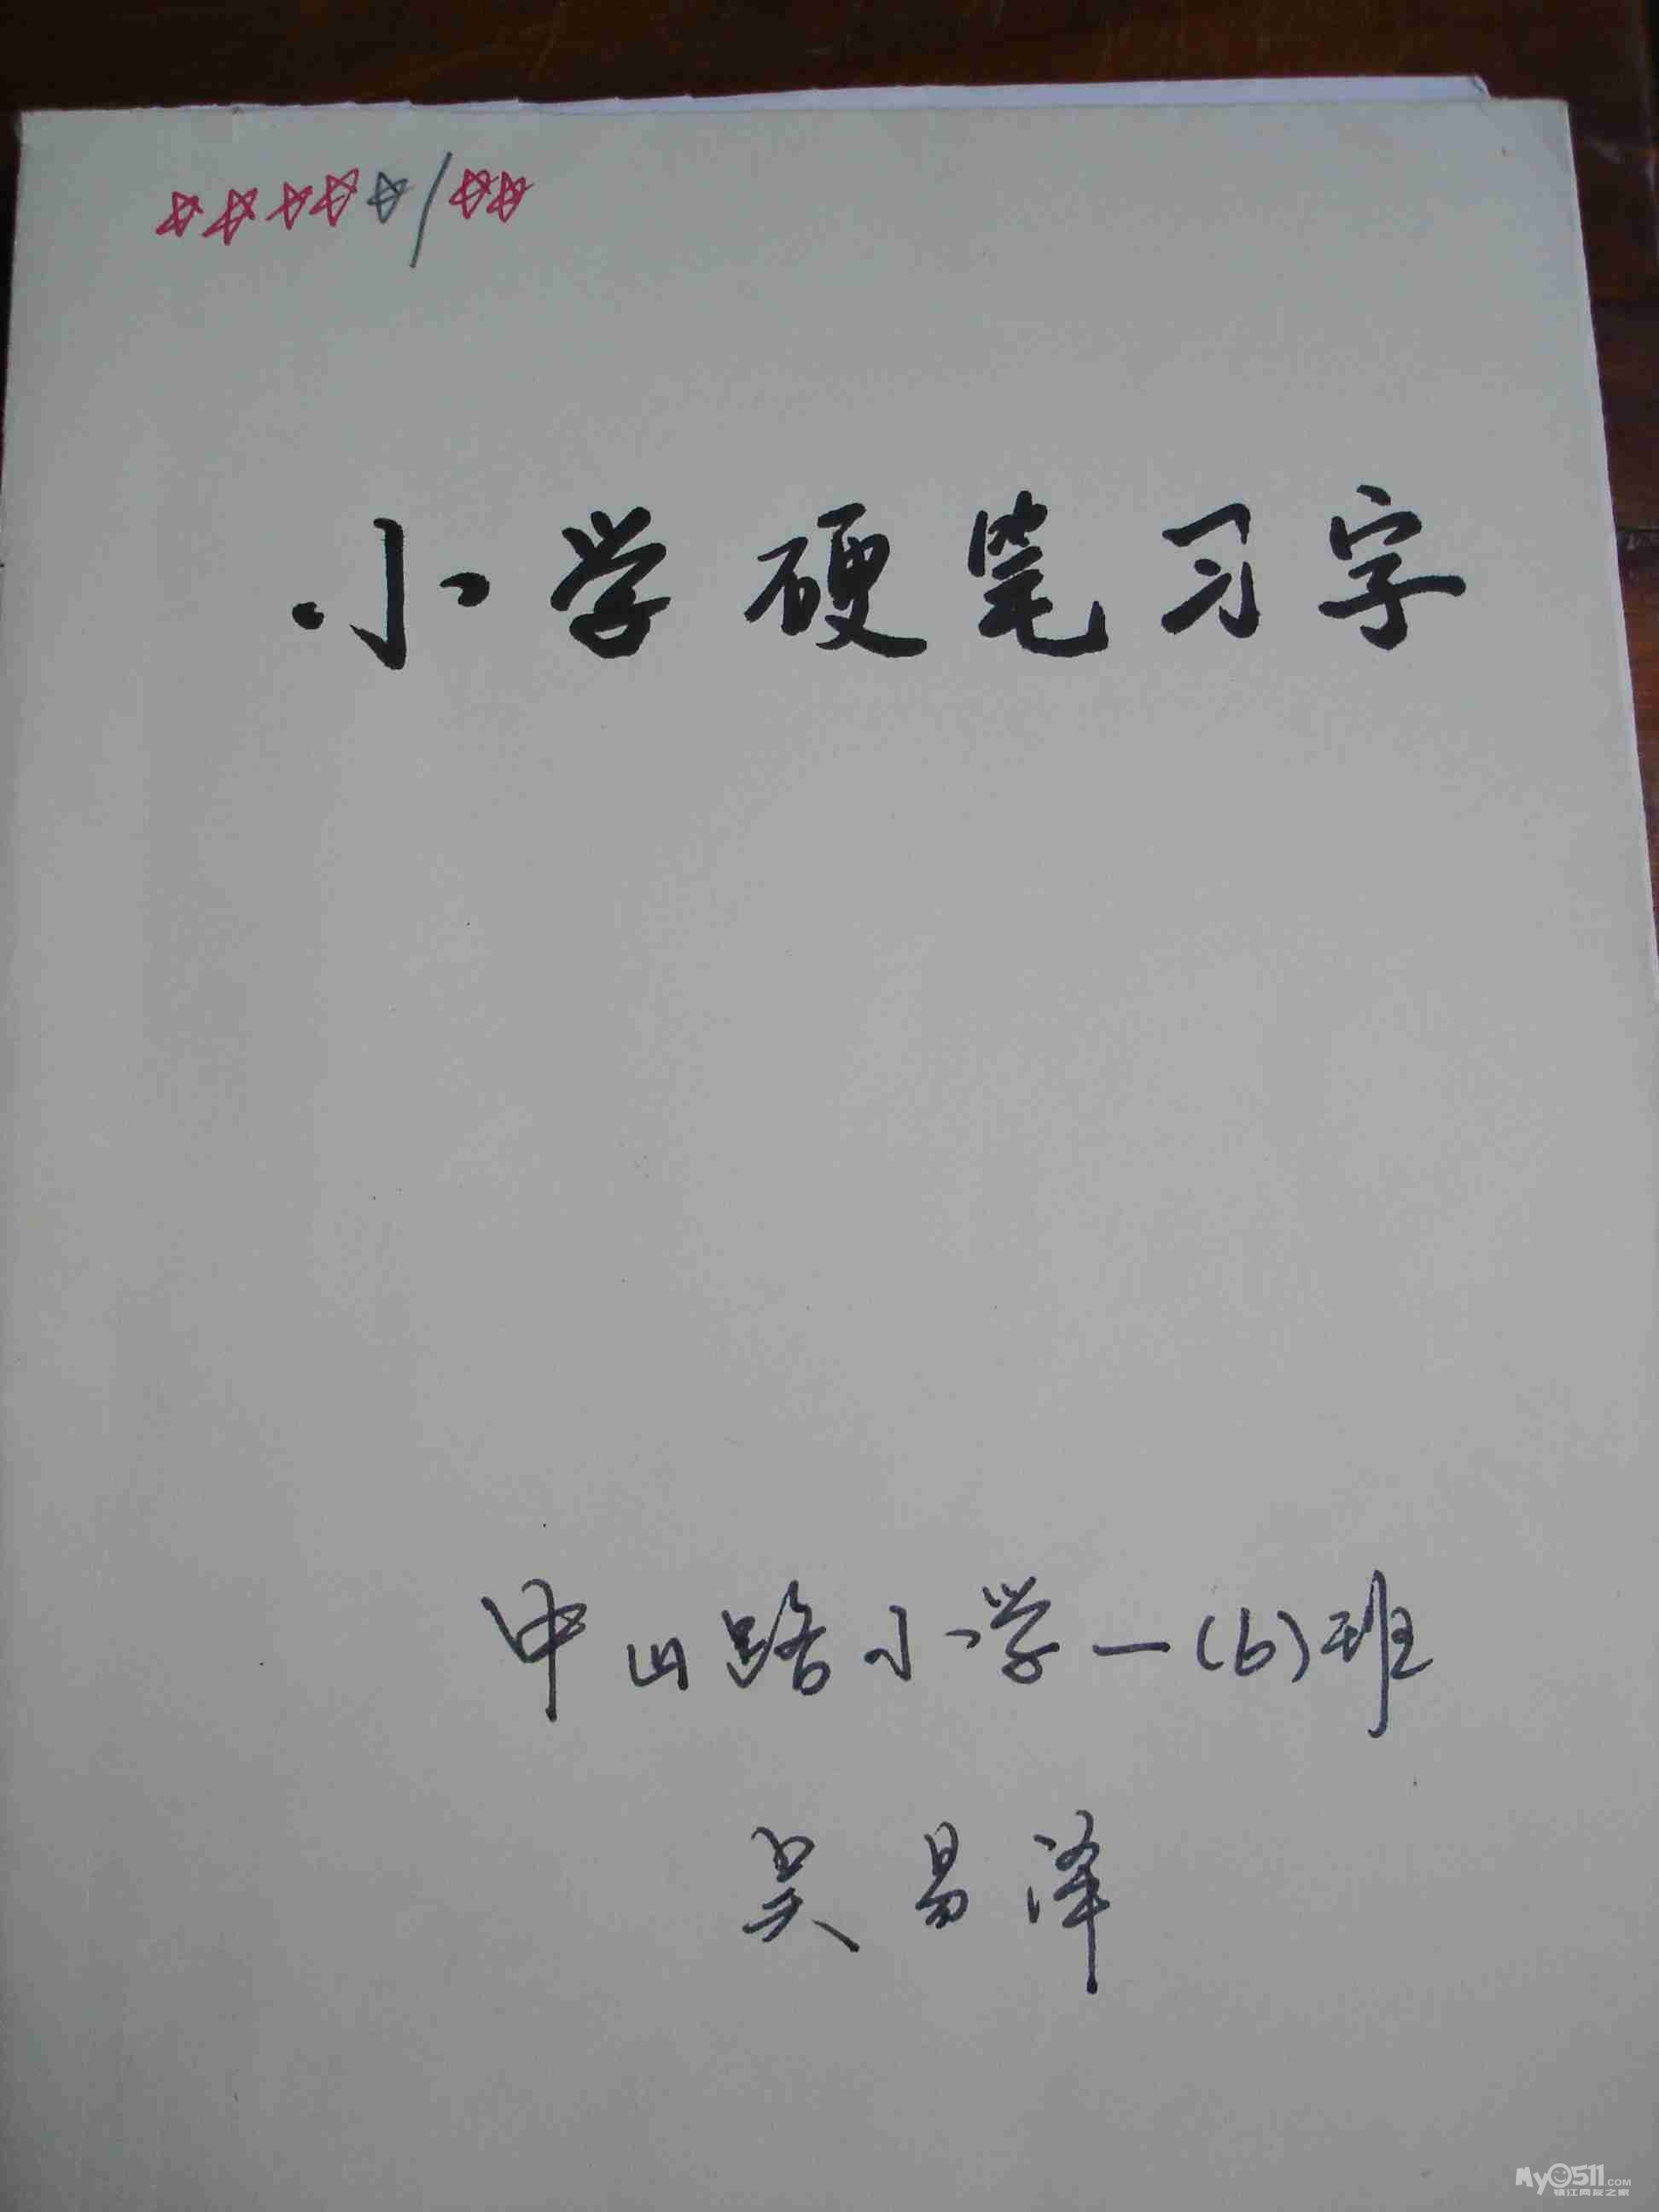 ☆☆☆☆☆/☆☆
小学硬笔习字
中山路小学一(6)班
吴易泽
My0511.COM
镇江网友之家